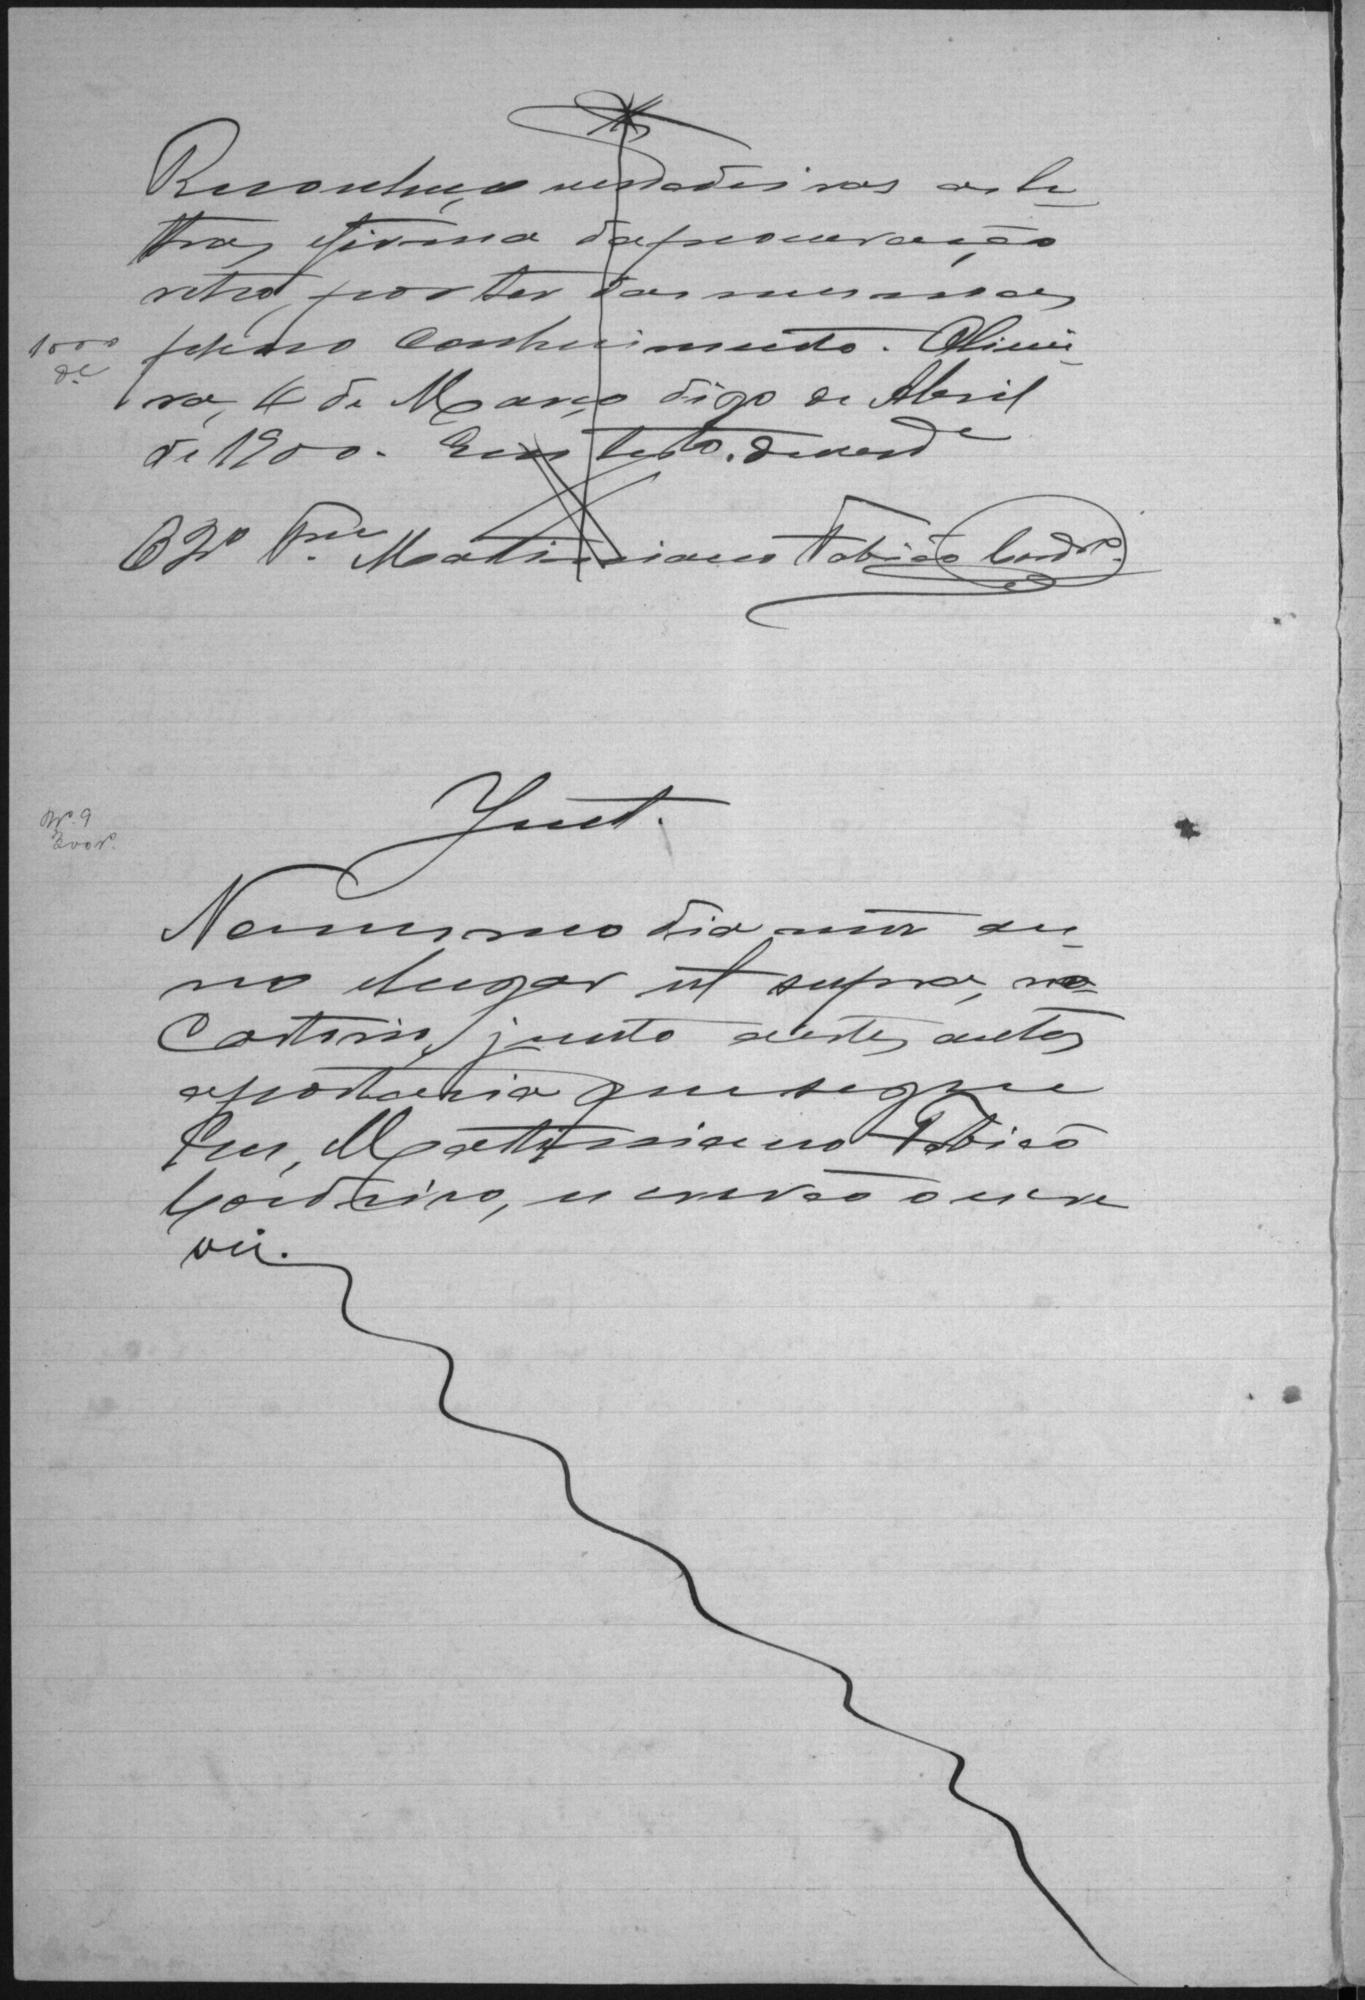 Reconheço verdadeiras as le-
tras e firma da procuração
retro, por ter das mesmas
1000
pleno conhecimento. Olivei-
ra, 4 de Março digo de Abril
de 1900. Em testo. da verde
O 2º Martiniano Tobias Cordro.
Junt.
Nº. 9
No mesmo dia mez an-
no e lugar ut supra, no
Cartorio, junto a estes autos
a portaria que segue
Eu, Martiniano Tobias
Cordeiro, escrivão o escre
vi.